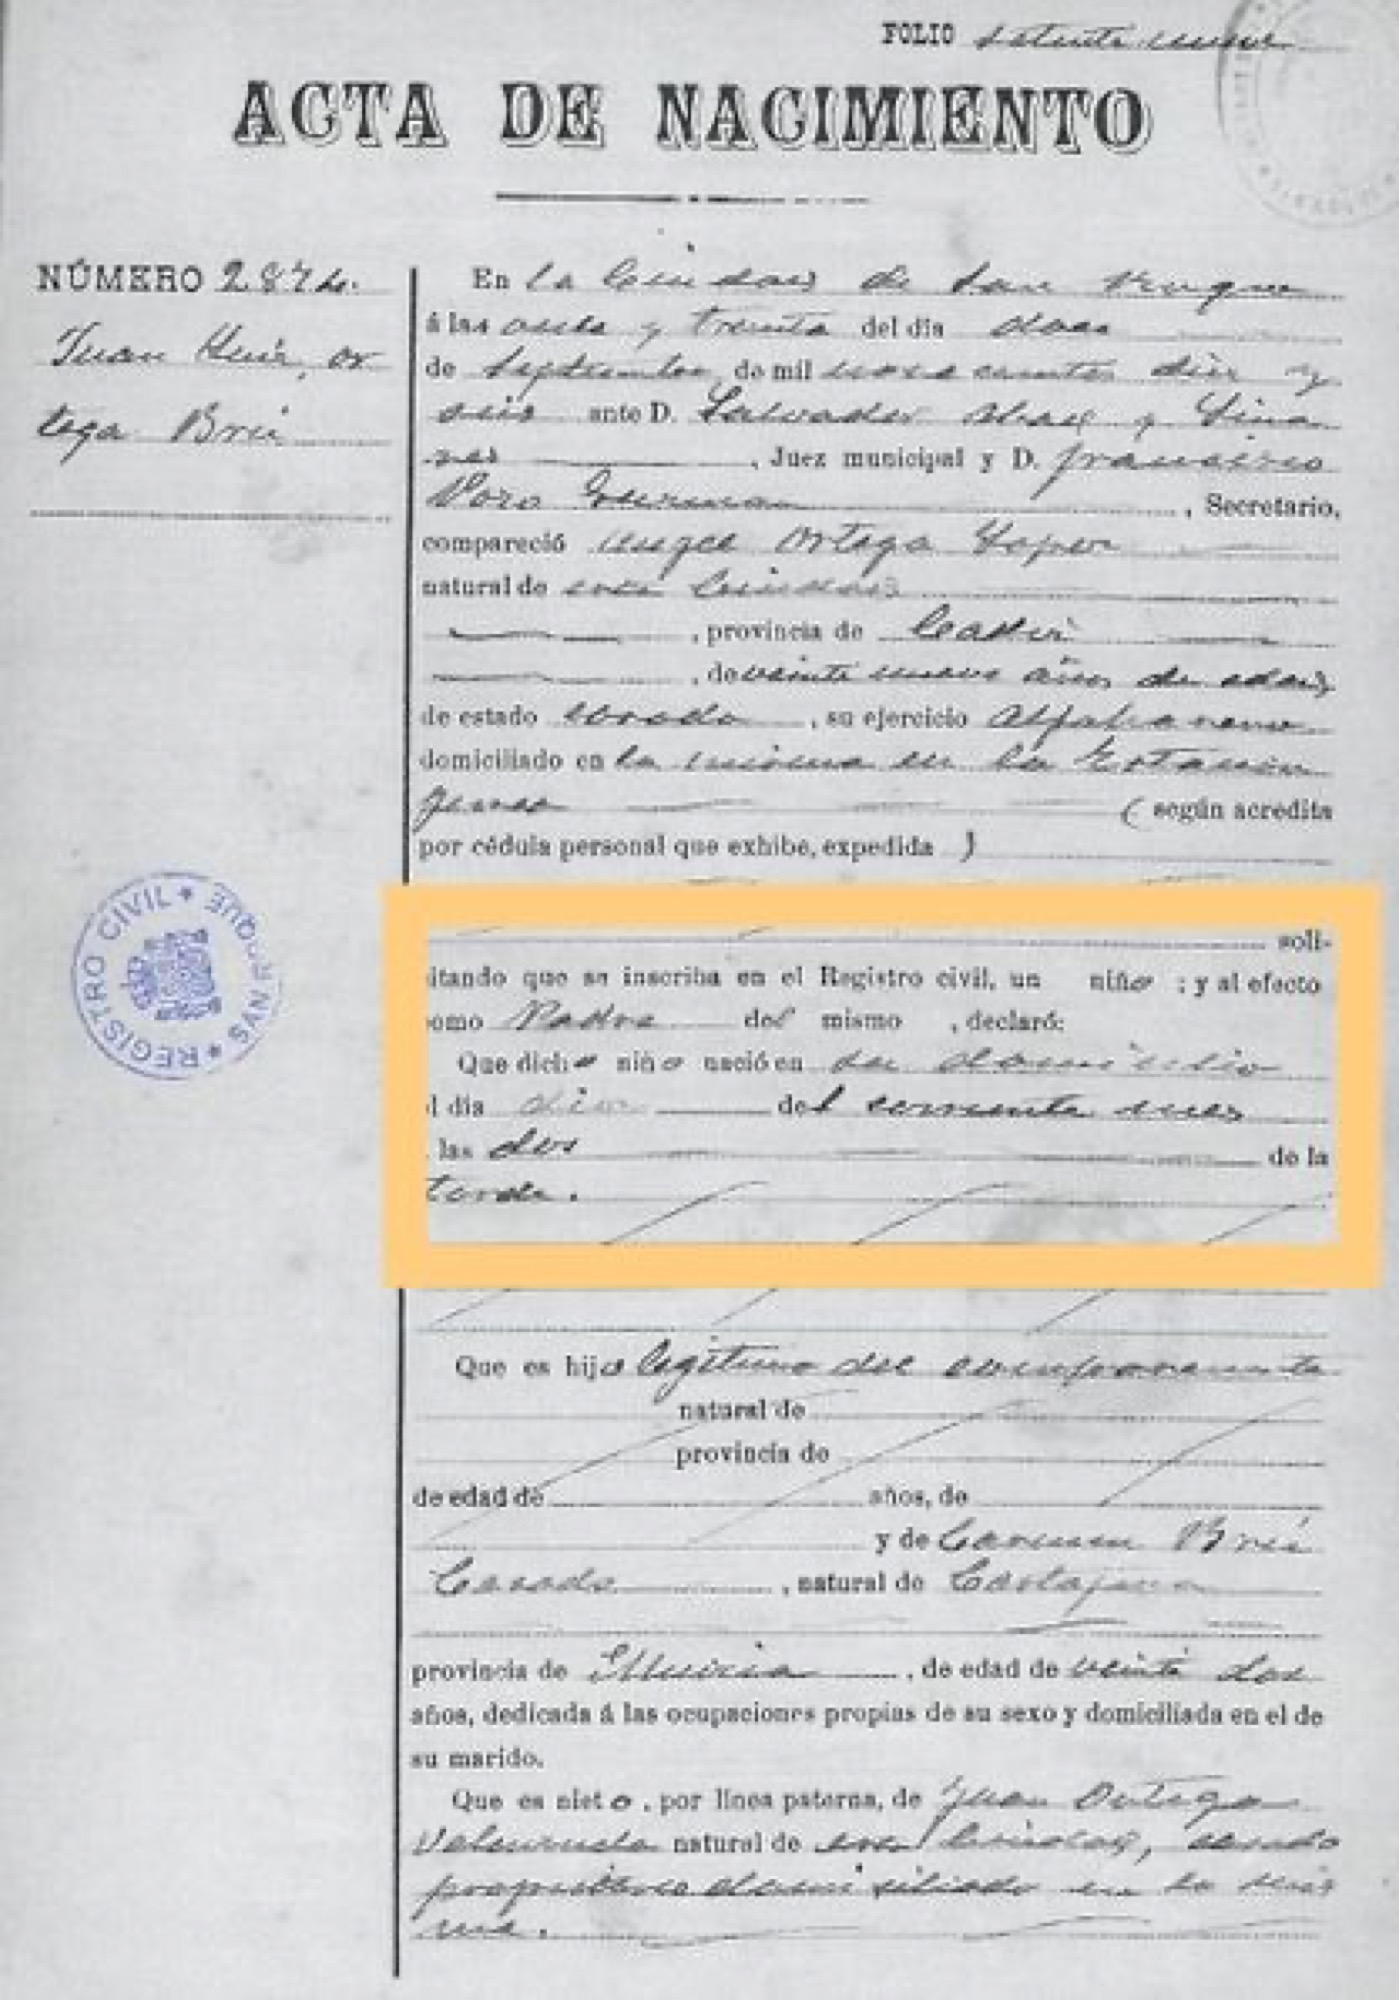 FOLIO setenta nueve
ACTA DE NACIMIENTO
NÚMERO 2874.
Juan Luis, or
tega Brú
En la Ciudad de San Roque
á las once y treinta del día doce
de Septiembre de mil novecientos diez y
seis ante D. Salvador y Lina
res, Juez municipal y D. Francisco
Pozo Guzman, Secretario,
compareció Angel Ortega Lopez
natural de esta Ciudad
, provincia de Cadiz
, de veinte nueve años de edad
de estado casado, su ejercicio Alfarero
domiciliado en la misma en la Estacion
ferrea ( según acredita
por cédula personal que exhibe, expedida )
REGISTRO CIVIL * SAN ROQUE *
soli-
itando que se inscriba en el Registro civil, un niño ; y al efecto
omo Padre del mismo , declaró:
Que dicho niño nació en su domicilio
l día diez del corriente mes
las dos de la
tarde.
Que es hijo legitimo del compareciente
natural de
provincia de
de edad de años, de
y de Carmen Brú
Casado, natural de Cartajena
provincia de Murcia, de edad de veinti dos
años, dedicada á las ocupaciones propias de su sexo y domiciliada en el de
su marido.
Que es nieto, por línea paterna, de Juan Ortega
Valenzuela natural de esta Ciudad, casado
propietario domisiliado en la mis
ma.